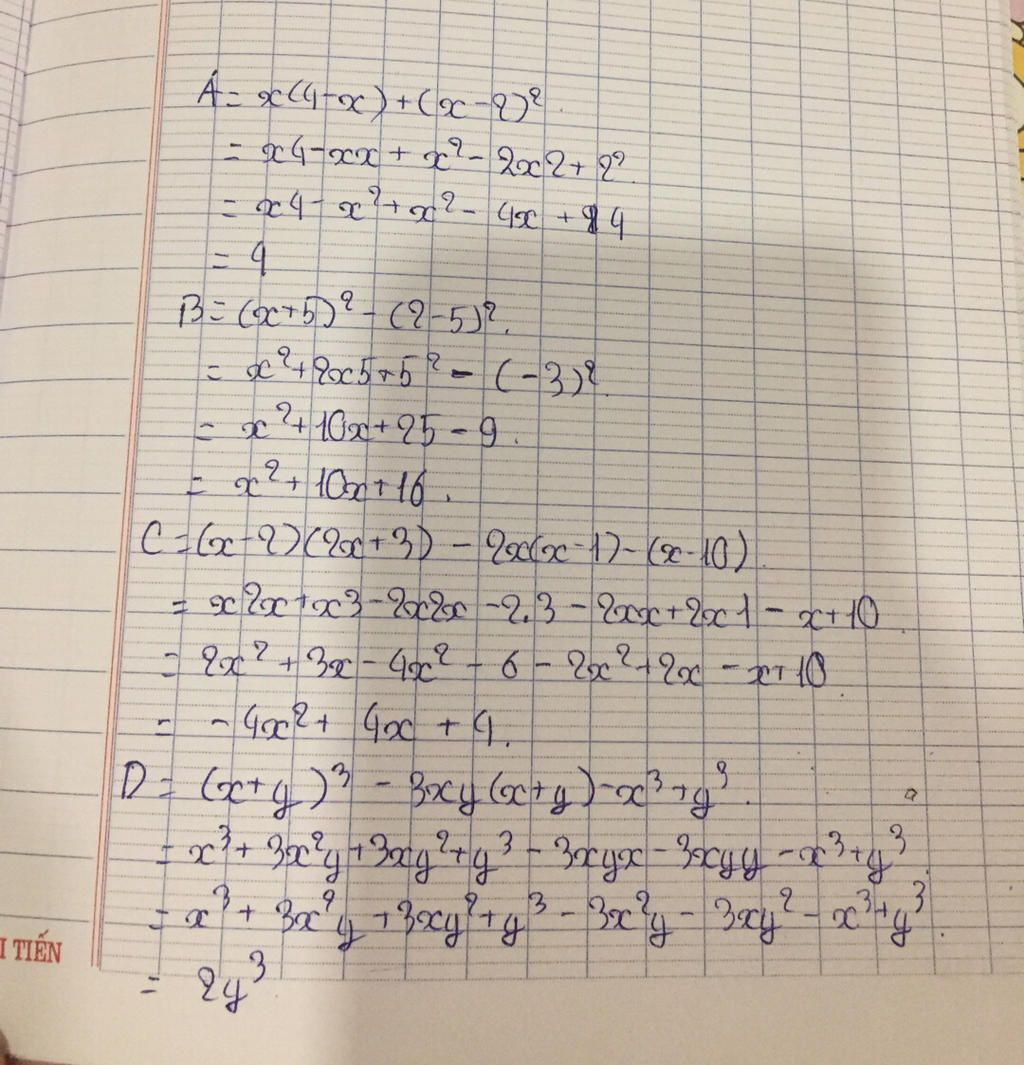 A = x(4-x) + (x-2)²
= x4-xx + x² - 2x2 + 2²
= x4 - x² + x² - 4x + 4
= 4
B = (x+5)² - (2-5)².
= x² + 2x5 + 5² - (-3)².
= x² + 10x + 25 - 9.
= x² + 10x + 16.
C = (x-2)(2x+3) - 2x(x-1) - (x-10).
= x2x + x3 - 2x2x - 2.3 - 2xx + 2x1 - x + 10.
= 2x² + 3x - 4x² - 6 - 2x² + 2x - x + 10.
= -4x² + 4x + 4.
D = (x+y)³ - 3xy(x+y) - x³ + y³.
= x³ + 3x²y + 3xy² + y³ - 3xyx - 3xyy - x³ + y³.
= x³ + 3x²y + 3xy² + y³ - 3x²y - 3xy² - x³ + y³.
I TIẾN
= 2y³